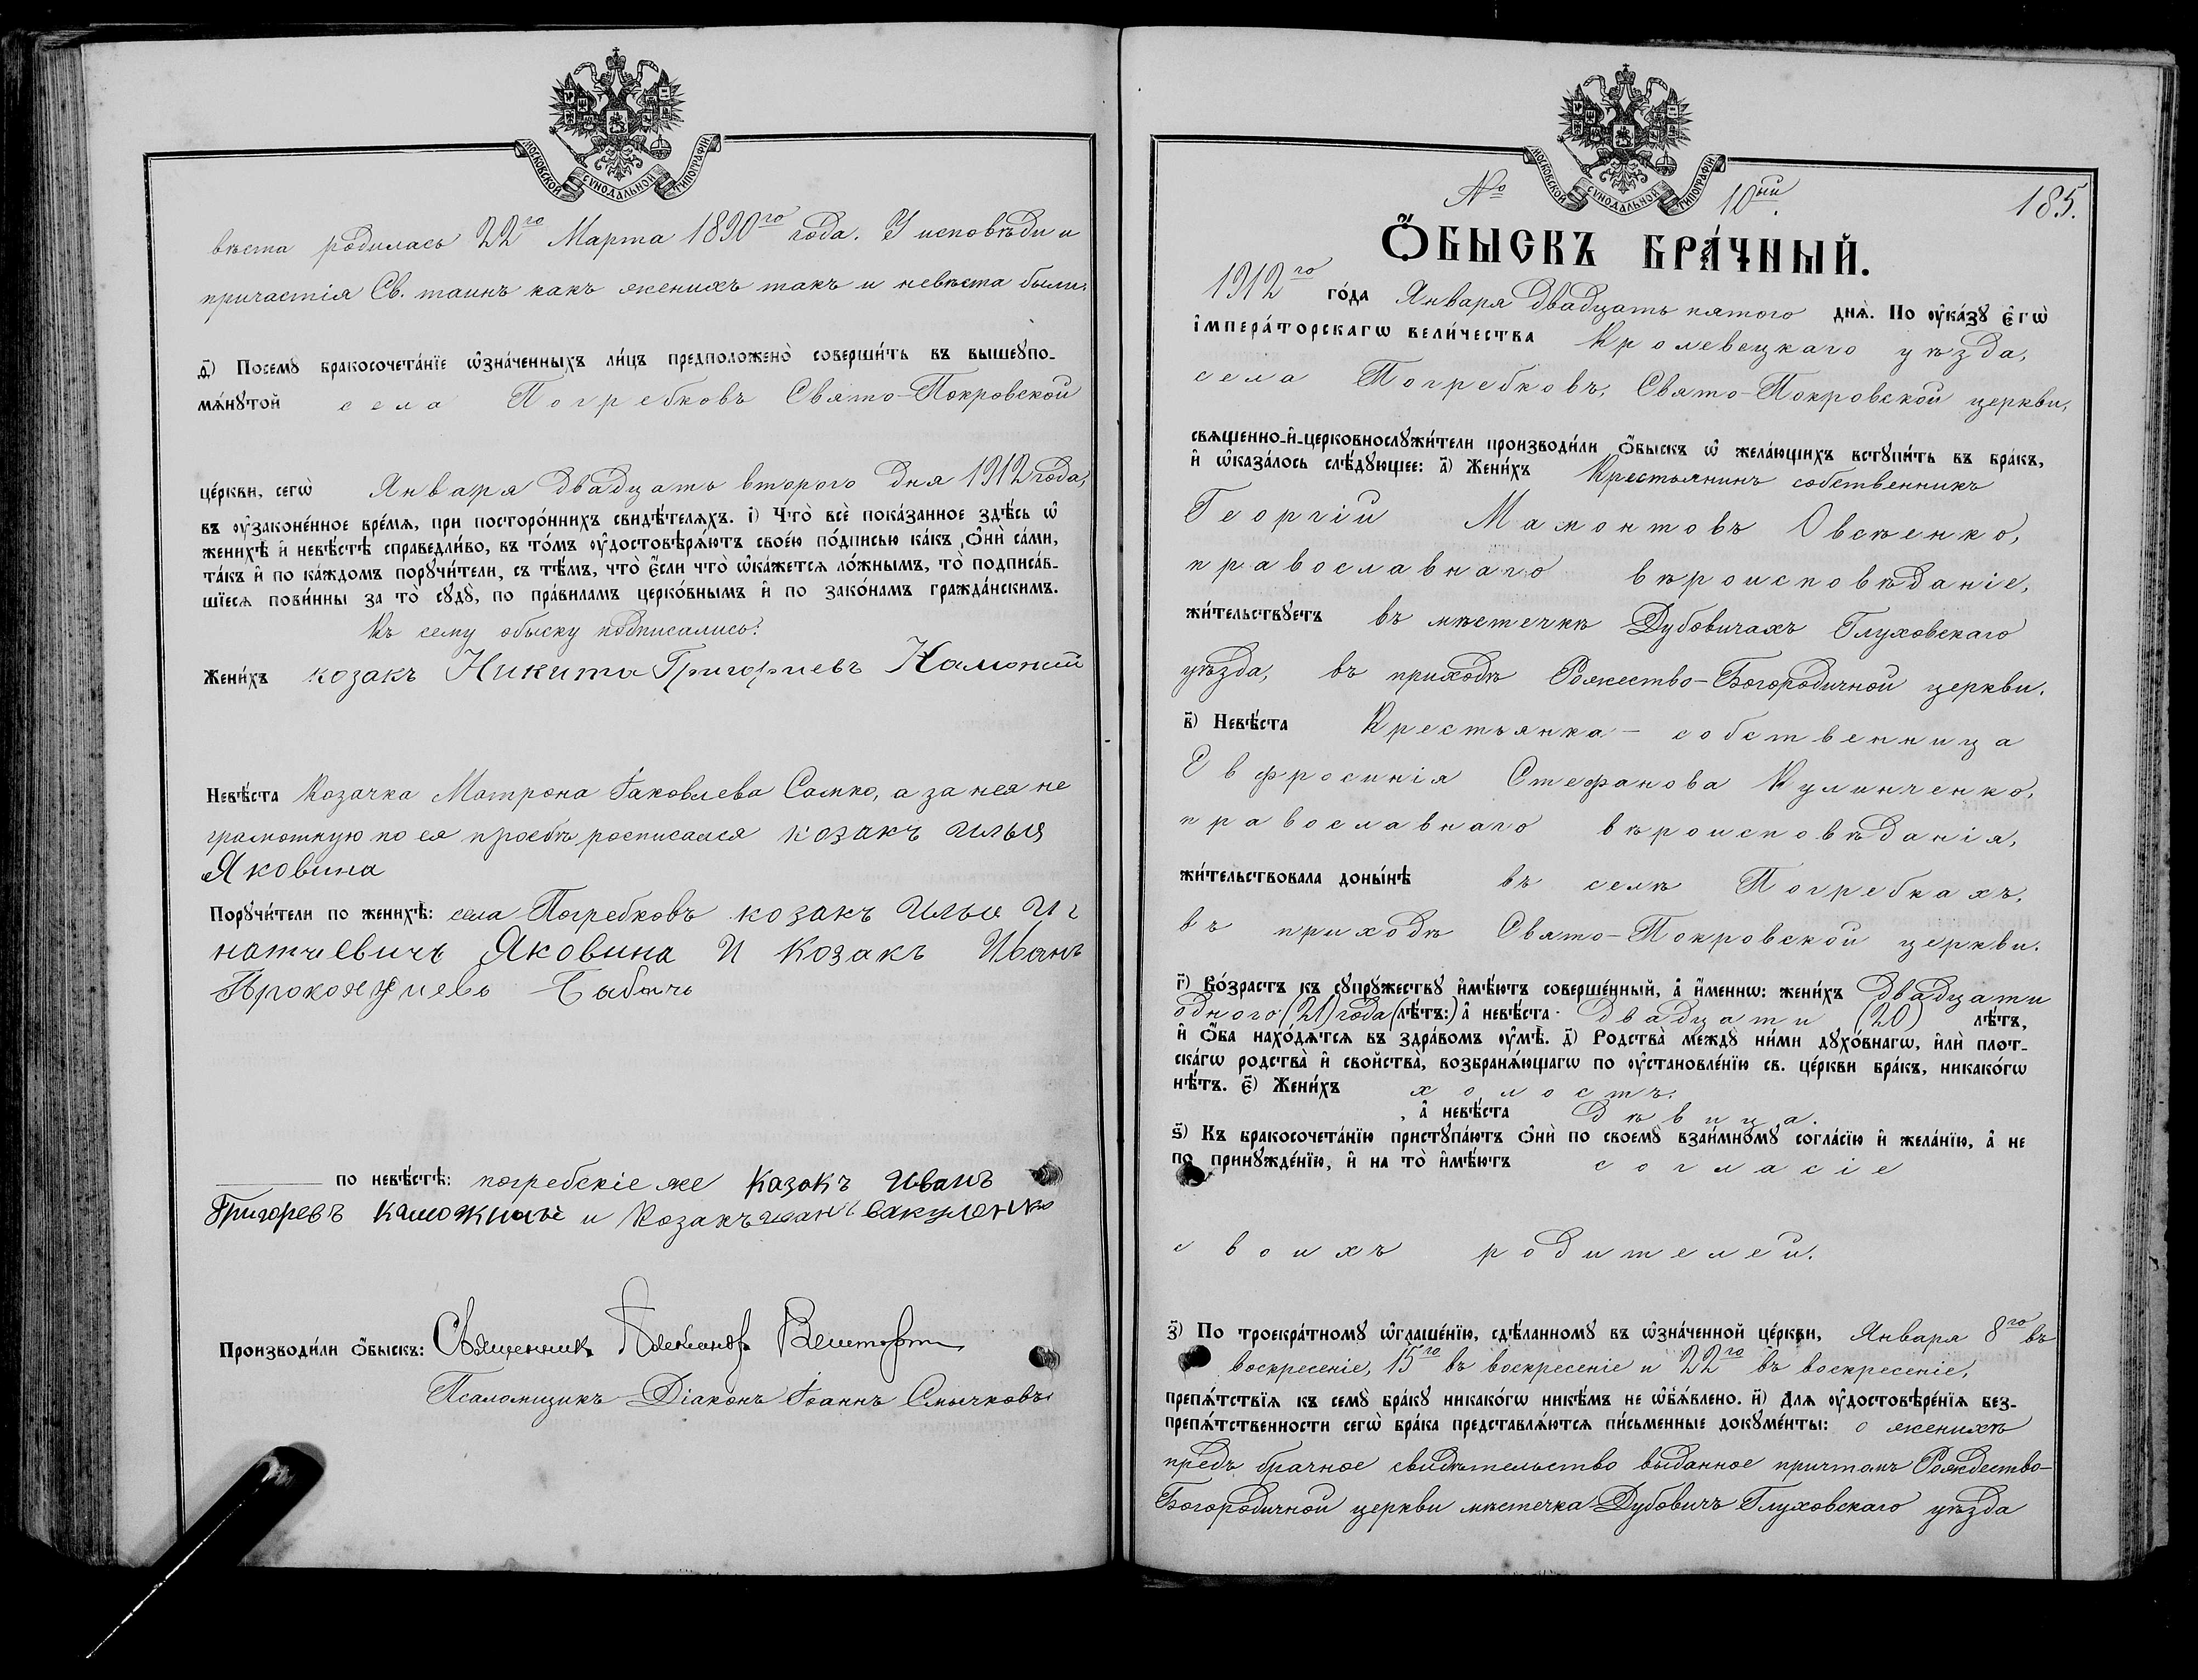 МОСКОВСКОЙ СѴНОДАЛЬНОЙ ТИПОГРАФІИ
вѣста родилась 22го Марта 1890го года. У исповѣди и
причастія Св. таинъ какъ женихъ такъ и невѣста были.
д҃) Посемꙋ бракосочета́нїе ѡ҆зна́ченныхъ ли́цъ предположено̀ соверши́ть въ вышеꙋпо-
мѧ́нꙋтой села Погребковъ Свято-Покровской
це́ркви, сегѡ̀ Января двадцать второго дня 1912 года,
въ ᲂу҆законе́нное вре́мѧ, при посторо́ннихъ свидѣ́телѧхъ. і҃) Что̀ всѐ пока́занное здѣ́сь ѡ҆
женихѣ̀ и҆ невѣ́стѣ справедли́во, въ то́мъ ᲂу҆достовѣрѧ́ютъ свое́ю по́дписью ка́къ ѻ҆нѝ са́ми,
та́къ и҆ по ка́ждомъ порꙋчи́тели, съ тѣ́мъ, что̀ є҆́сли что̀ ѡ҆ка́жетсѧ ло́жнымъ, то̀ подписа́в-
шїесѧ пови́нны за то̀ сꙋдꙋ̀, по пра́виламъ церко́внымъ и҆ по зако́намъ гражда́нскимъ.
Къ сему обыску подписались:
Жени́хъ козакъ Никита Григориевъ
Невѣ́ста Козачка Матрона Іаковлева Самко, а за нея не
грамотную по ея просьбѣ росписался козакъ Илья
Яковина
Порꙋчи́тели по женихѣ̀: села Погребковъ козакъ Илья Иг
натиевичъ Яковина И козакъ Иванъ
Бабичъ
по невѣ́стѣ: погребскіе же казакъ Иванъ
Григоревъ и Козакъ Иванъ Вакуленко
Производи́ли ѻ҆́быскъ: Священникъ
Псаломщикъ Діаконъ Іоаннъ Смычковъ
МОСКОВСКОЙ СѴНОДАЛЬНОЙ ТИПОГРАФІИ
№ 10ый 185.
Ѻ҆́БЫСКЪ БРА́ЧНЫЙ.
1912го го́да Января двадцать пятого днѧ̀. По ᲂу҆ка́зꙋ є҆гѡ̀
і҆мпера́торскагѡ вели́чества Кролевецкаго уѣзда,
села Погребковъ, Свято-Покровской церкви,
свѧщенно-и҆-церковнослꙋжи́тели производи́ли ѻ҆́быскъ ѡ҆ жела́ющихъ встꙋпи́ть въ бра́къ,
и҆ ѡ҆каза́лось слѣ́дꙋющее: а҃) Жени́хъ Крестьянинъ собственникъ
Георгій Мамонтовъ Овсѣенко,
православнаго вѣроисповѣданіе,
жи́тельствꙋетъ въ мѣстечкѣ Дубовичахъ Глуховскаго
уѣзда, въ приходѣ Рожество-Богородичной церкви.
в҃) Невѣ́ста Крестьянка-собственница
Евфросинія Стефанова Кулинченко,
православнаго вѣроисповѣданія,
жи́тельствовала доны́нѣ въ селѣ Погребкахъ,
въ приходѣ Свято-Покровской церкви.
г҃) Во́зрастъ къ сꙋпрꙋ́жествꙋ и҆мѣ́ютъ соверше́нный, а҆ и҆́меннѡ: жени́хъ двадцати
одного (21) года (лѣ́тъ:) а҆ невѣ́ста двадцати (20) лѣ́тъ,
и҆ ѻ҆́ба нахо́дѧтсѧ въ здра́вомъ ᲂу҆мѣ̀. д҃) Родства̀ междꙋ̀ ни́ми дꙋхо́внагѡ, и҆лѝ плот-
ска́гѡ родства̀ и҆ сво́йства, возбранѧ́ющагѡ по ᲂу҆становле́нїю св. це́ркви бра́къ, никако́гѡ
нѣ́тъ. є҃) Жени́хъ холостъ.
, а҆ невѣ́ста дѣвица.
ѕ҃) Къ бракосочета́нїю пристꙋпа́ютъ ѻ҆нѝ по своемꙋ̀ взаи́мномꙋ согла́сїю и҆ жела́нїю, а҆ не
по принꙋжде́нїю, и҆ на то̀ и҆мѣ́ютъ согласіе
своихъ родителей.
з҃) По троекра́тномꙋ ѡ҆глаше́нїю, сдѣ́ланномꙋ въ ѡ҆зна́ченной це́ркви, Января 8го въ
воскресеніе, 15го въ воскресеніе и 22го въ воскресеніе,
препѧ́тствїѧ къ семꙋ̀ бра́кꙋ никако́гѡ никѣ́мъ не ѡ҆б̾ѧ́влено. и҃) Длѧ ᲂу҆достовѣре́нїѧ без-
препѧ́тственности сегѡ̀ бра́ка представлѧ́ютсѧ пи́сьменные докꙋме́нты: о женихѣ
предъ брачное свидѣтельство выданное причтомъ Рождество-
Богородичной церкви мѣстечка Дубовичъ Глуховскаго уѣзда